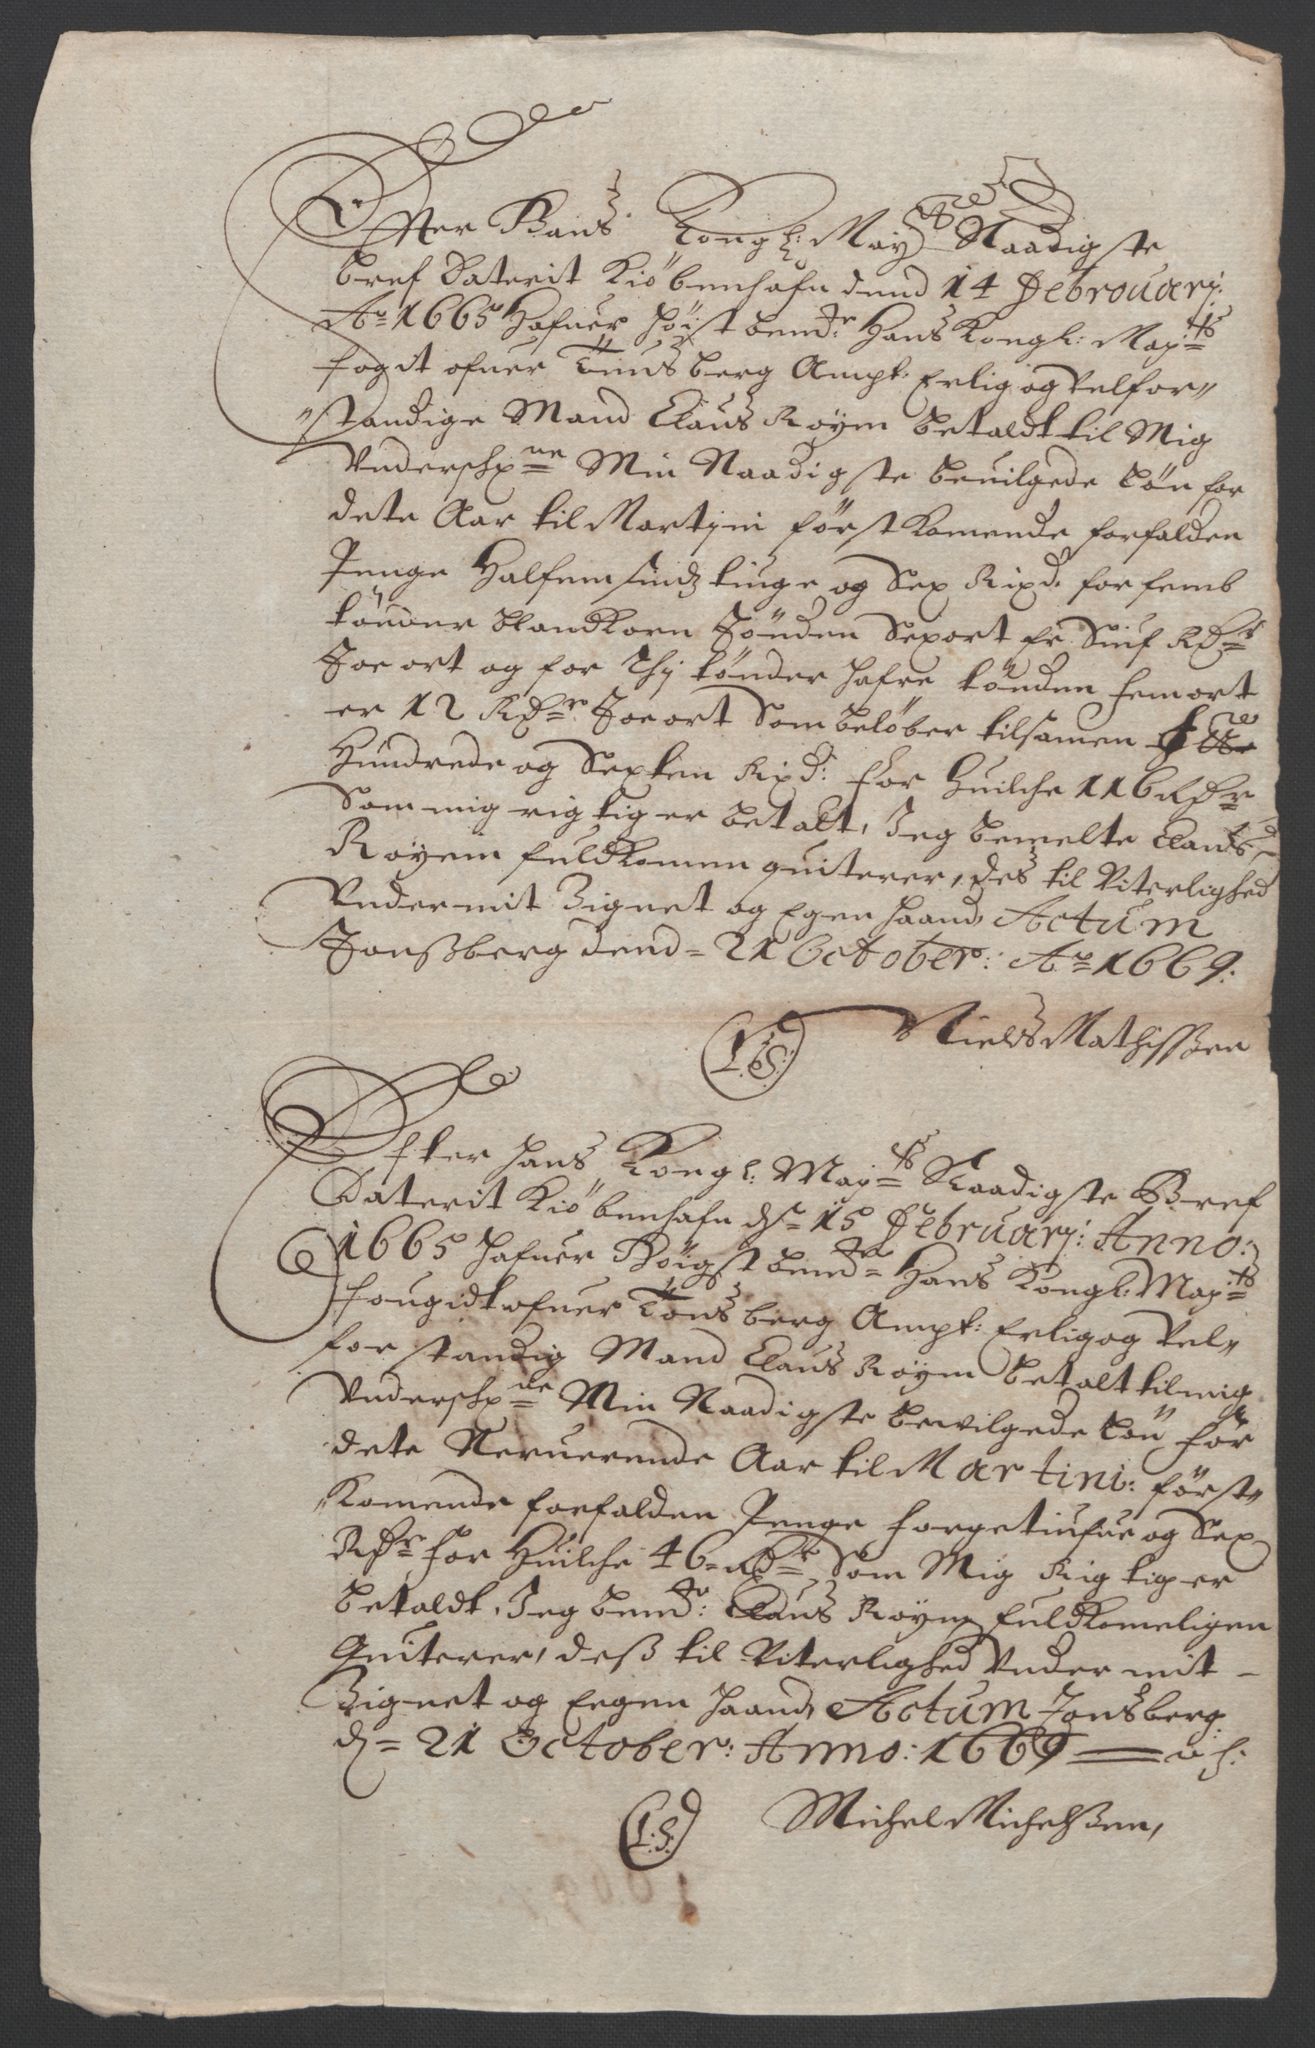 Effter Hans Kongl: May:tz Naadigste
bref Daterit Kiöbenhafn dend 14 Febrouarj:
Ao 1665 Hafuer høist bem:te Hans Kongl: May:tz
fogit ofuer Tunsberg Ampt. Erlig og Velfor„
„standige Mand Claus Røyem betaldt til Mig
Underschr:ne Min Naadigste beuilgede Løn for
dete Aar til Martinj først Komende forfalden
Penge Halfemsindztiuge og Sex Rixd. for femb
tønder blandkorn Tønden Sexort er Siuf Rdr
Toe ort og for Thj tønder hafre tønden femort
er 12 Rdr Toe ort Som beløber tilsamen Et
Hundrede og Sexten Rixd: for Huilche 116 Rdr
Som mig rigtig er betalt, Jeg bemelte Claus
Røyem fuldkomen quiterer, des til Viterlighed
Under mit Zignet og Egen haand, Actum
Tonsberg dend 21 October: Ao 1669:
(L:S:) Niels Mathissen
Efter Hans Kongl: May:tz Naadigste Bref
Daterit Kiöbenhafn d: 15 Februarj: Anno:
1665 hafuer Høigstbem:te Hans Kongl: May:tz
fougidt ofuer Tonsberg Ampt: Erlig og Vel„
for standig Mand Claus Røyem betalt til mig
Underschr:ne Min Naadigste bewilgede Løn for
dete Neruerende Aar til Martini: først„
„Komende forfalden Penge førgetiufue og Sex
Rdr for Huilche 46 Rdr Som Mig Rigtig er
betaldt, Jeg bem:te Claus Røyem fuldkomeligen
Quiterer, deß til Viterlighed Under mit -
Zignet og Eegen haand, Actum Tonsberg
d: 21 October: Anno: 1669
(L:S:) Michel Michelßen,